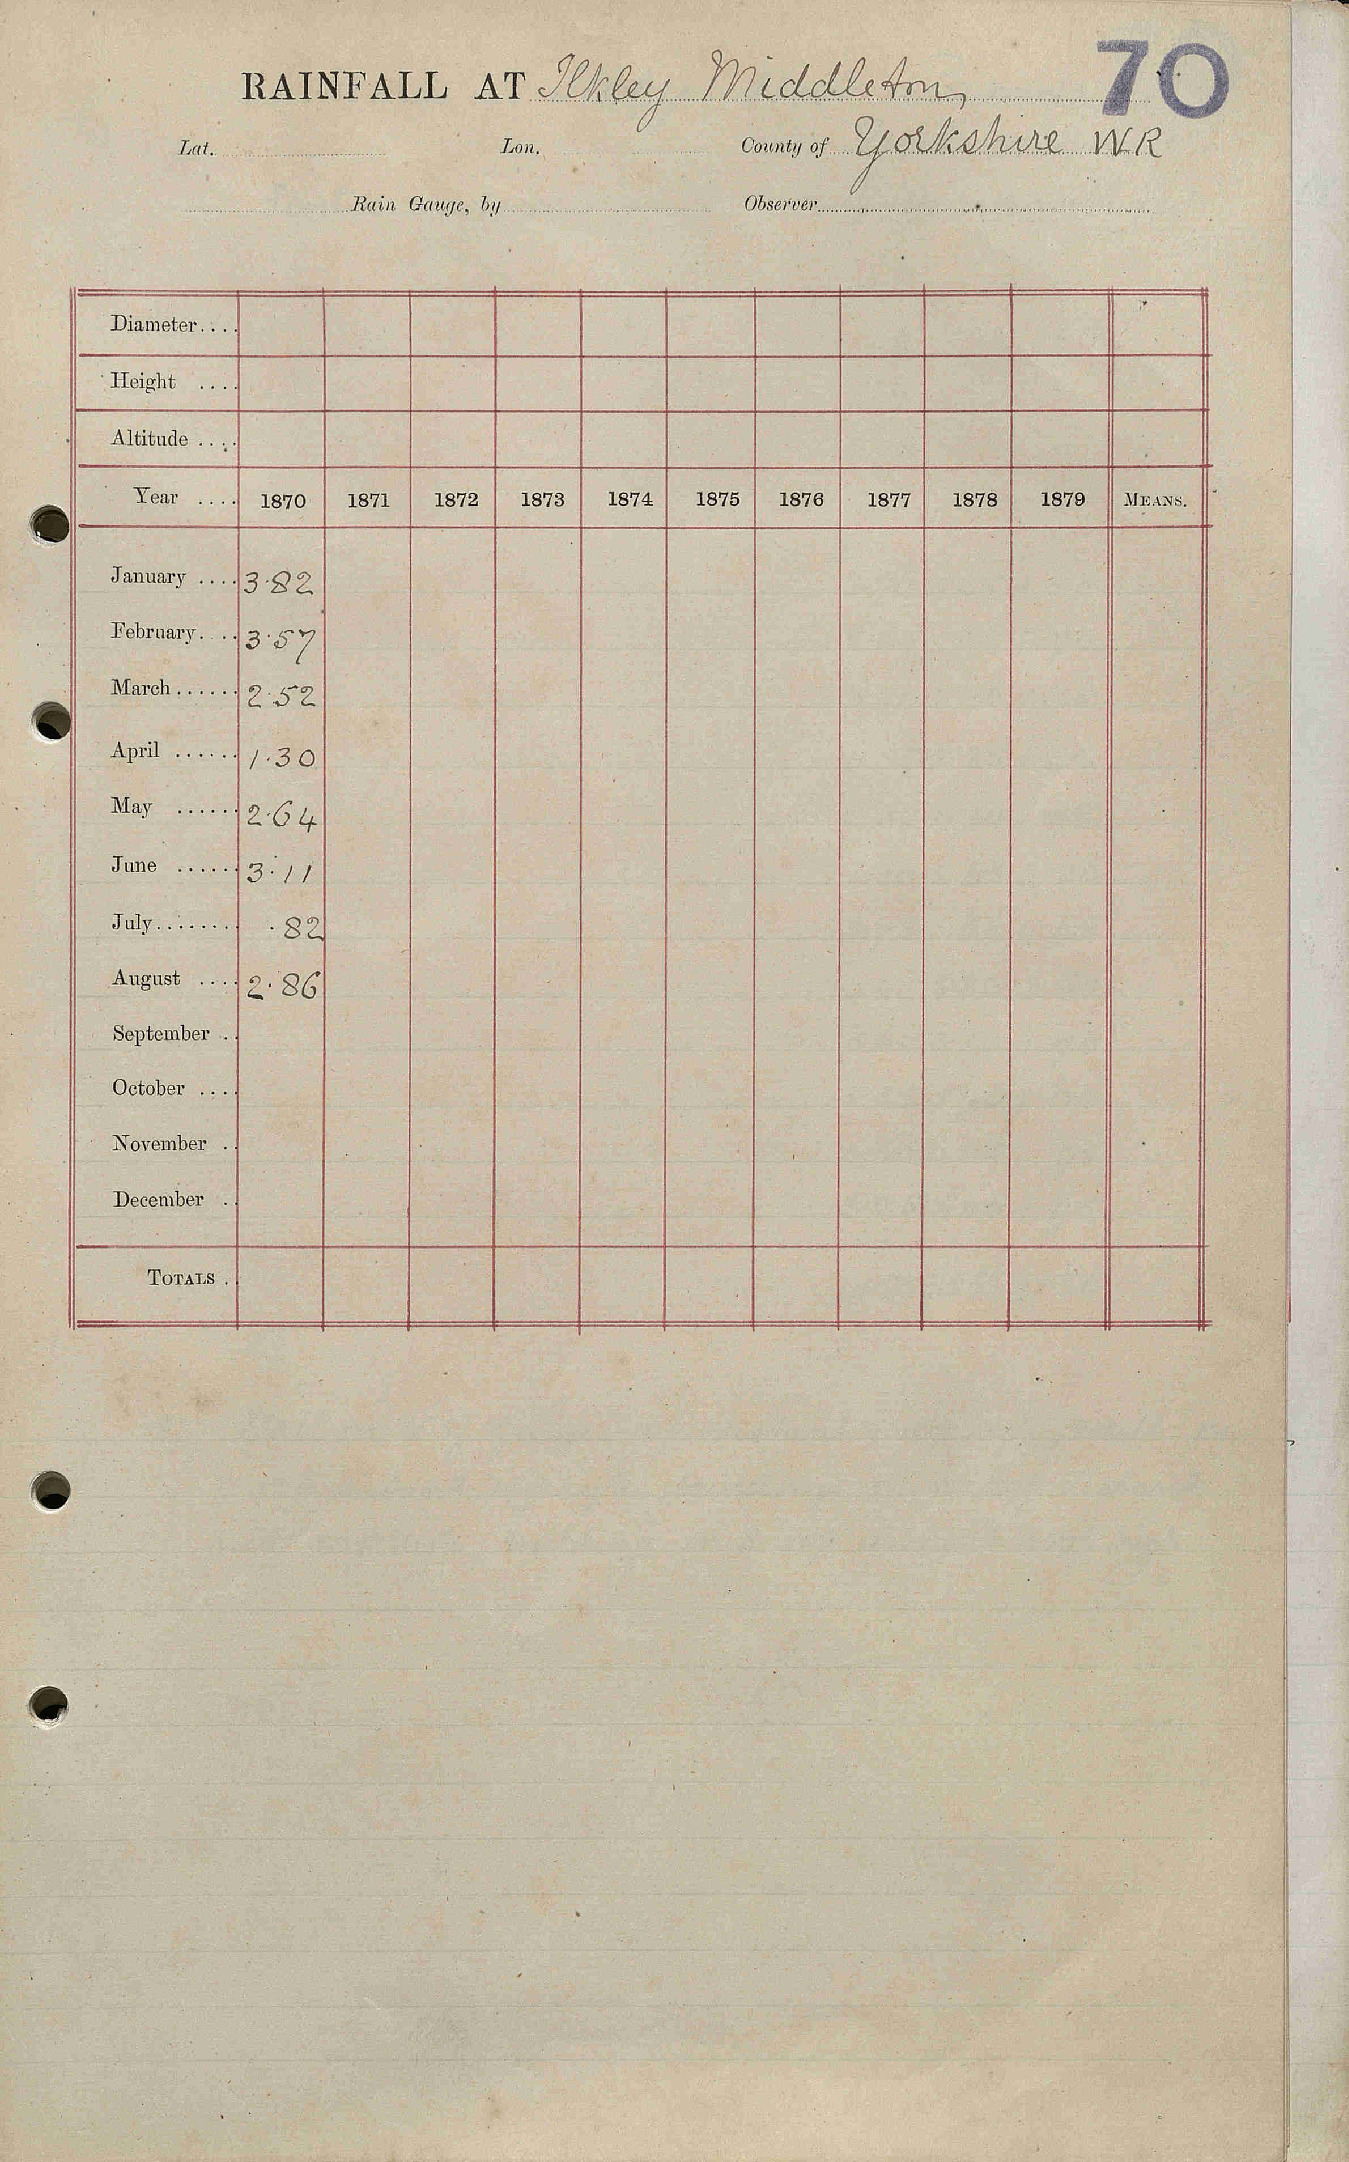 70
RAINFALL AT Ilkley Middleton
Lat. Lon. County of Yorkshire WR
Rain Gauge, by Observer
Diameter....
Height ....
Altitude ....
Year .... 1870 1871 1872 1873 1874 1875 1876 1877 1878 1879 MEANS.
January .... 3.82
February.... 3.57
March...... 2.52
April ...... 1.30
May ...... 2.64
June ...... 3.11
July........ .82
August .... 2.86
September ..
October ....
November ..
December ..
TOTALS .